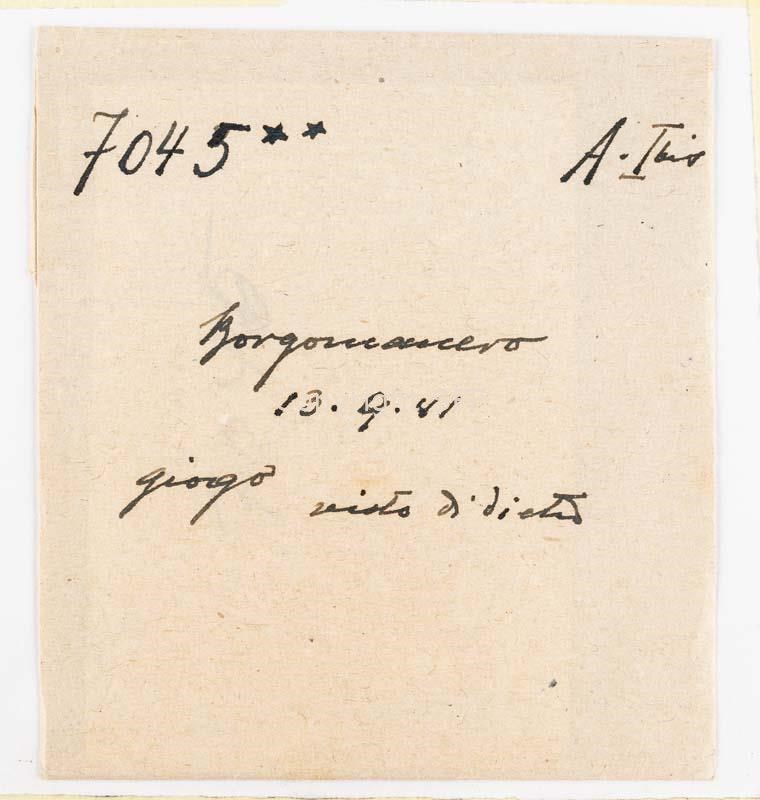 7045** A. I bis
Borgomanero
13. 9. 41
giorgo
visto di dietro